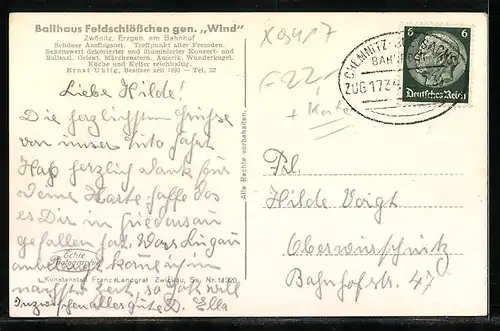 Ballhaus Feldschlößchen gen. „Wind"
Zwönitz, Erzgeb. am Bahnhof
Schöner Ausflugsort. Treffpunkt aller Fremden.
Sehenswert dekorierter und illuminierter Konzert- und
Ballsaal. Orient. Märchenstern. Amerik. Wunderkugel.
Küche und Keller reichhaltig.
Ernst Uhlig, Besitzer seit 1892 — Tel. 22
Liebe Hilde!
Die herzlichsten Grüße
von unser Auto fahrt
Hab herzlich dank für
Deine Karte hoffe das
es Dir in Friedensau
gefallen hat. Was Lugau
anbelangt, komme ich in
nächster Zeit,
Inzwischen alles gute D. Ella
Echte
Photographie
Kunstanstalt Franz Landgraf Zwickau, Sa. Nr.
Alle Rechte vorbehalten.
X0417
+ Karte
CHEMNITZ-
BAHNPOST
ZUG 1734
6 6
Deutsches Reich
Frl.
Hilde Voigt
Oberwürschnitz
Bahnhofstr. 47